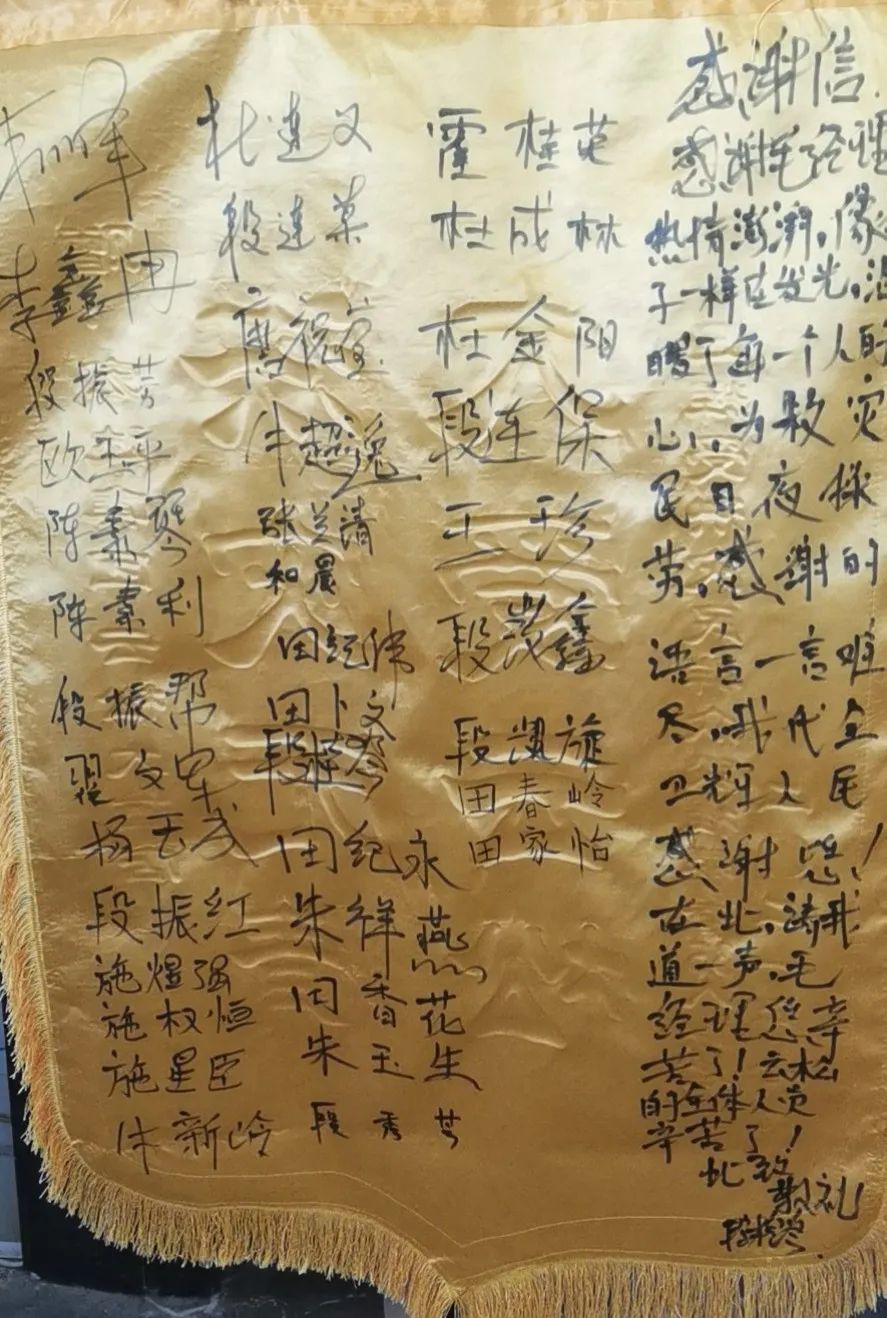 感谢信
感谢毛经理
热情澎湃,像
子一样在发光,温
暖了每一个人的
心,为救灾
民日夜操
劳,感谢的
语言一言难
尽,我代全
卫辉人民
感谢您!
在此,请我
道一声,毛
经理您辛
苦了!云松
的全体人员
辛苦了!
此致
敬礼
霍桂英
杜成林
杜金阳
段连保
王珍
段茂鑫
段淇旋
田春岭
田家怡
杜连义
段连菜
祝
牛超逸
张兰清
和晨
田纪伟
田卜文
段
田纪永
朱祥燕
田香花
朱玉生
段秀芹
李鑫冉
段振芳
欧玉平
陈素琴
陈素利
段振帮
文军
杨玉成
段振红
施煜强
施权恒
施星臣
牛新岭